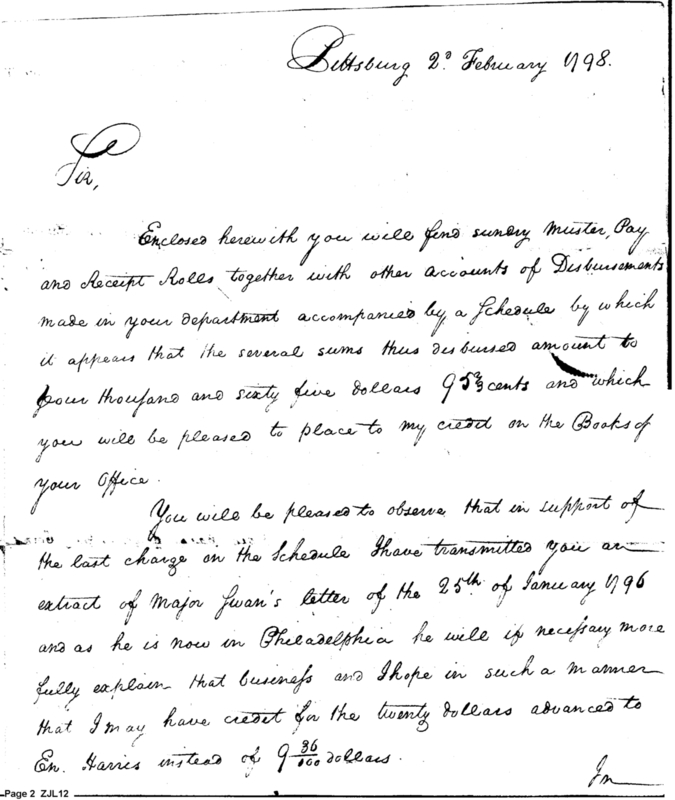 Pittsburg 2d. February 1798.
Sir,
Enclosed herewith you will find sundry Muster, Pay
and Receipt Rolls together with other accounts of Disbursements
made in your department accompanied by a Schedule by which
it appears that the several sums thus disbursed amount to
four thousand and sixty five dollars 95 2/3 cents and which
you will be pleased to place to my credit on the Books of
your Office.
You will be pleased to observe that in support of
the last charge on the Schedule I have transmitted you an
extract of Major Swan's letter of the 25th of January 1796
and as he is now in Philadelphia he will if necessary more
fully explain that business and I hope in such a manner
that I may have credit for the twenty dollars advanced to
En. Harris instead of 9 36/100 dollars.
In
Page 2 ZJL12